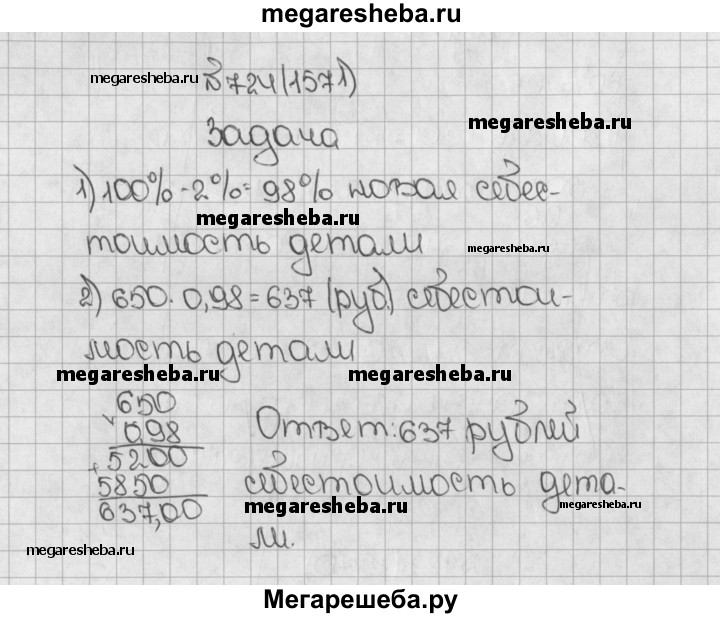 megaresheba.ru
megaresheba.ru №724(1571)
задача megaresheba.ru
1) 100% - 2% = 98% новая себес-
megaresheba.ru
тоимость детали megaresheba.ru
2) 650 · 0,98 = 637 (руб.) себестои-
мость детали
megaresheba.ru megaresheba.ru
× 650
0,98
+ 5200
5850
637,00
Ответ: 637 рублей
себестоимость дета-
megaresheba.ru megaresheba.ru
ли.
megaresheba.ru
Мегарешеба.ру